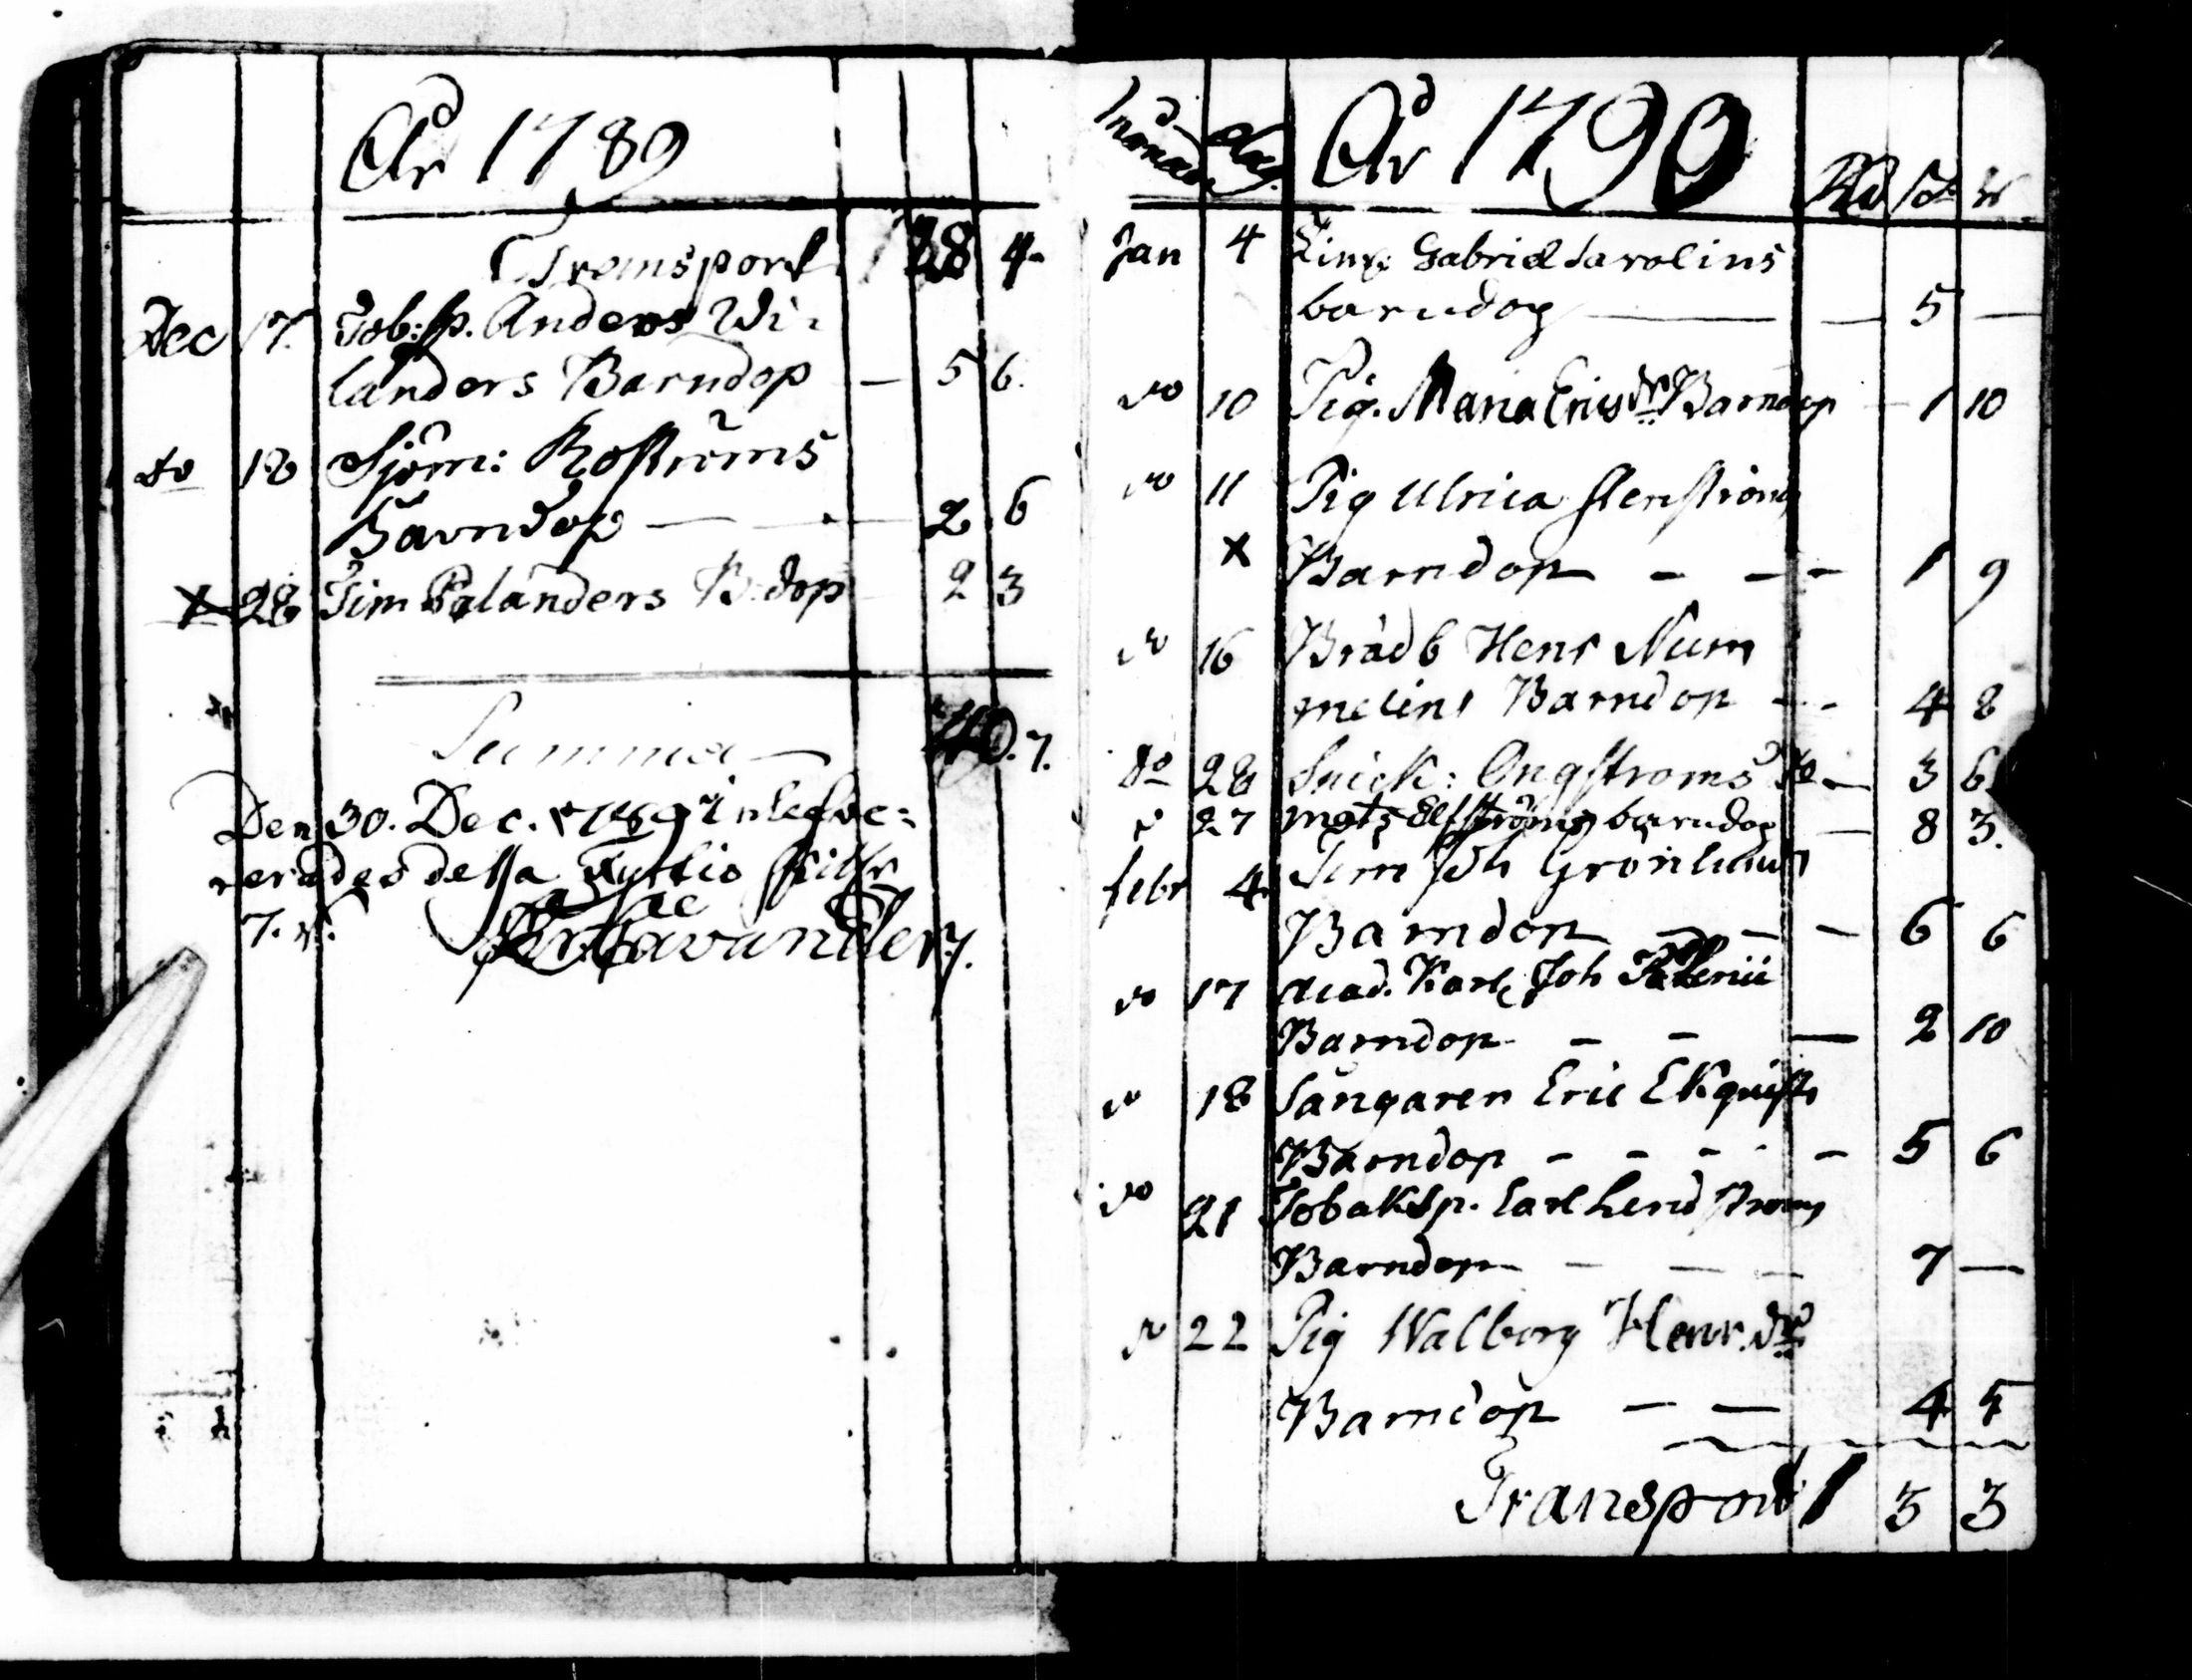 År 1789
Transport 1 28 4
Dec 17. Tob: sp. Anders Wi-
landers Barndop — 5 6.
do 18 Sjöm: Roströms
Barndop — 2 6
x 28 Tim Palanders B: dop 2 3
Summa — 40. 7.
Den 30. Dec. 1789 inlefve-
rerades dessa fyrtio skill:r
7. r:
År 1790
Rd sk r
Jan 4 Gabriel Carolins
barndop — — 5 —
do 10 Pig. Maria Erics dr Barndop — 1 10
do 11 Pig Ulrica Stenströms
x Barndop - - - 1 9
do 16 Brädb Henr Num
melins Barndop - - 4 8
do 28 Snick: Ongströms do — 3 6
do 27 mats Elfströms barndop — 8 3.
febr 4 Tim Joh Grönlunds
Barndop — — - 6 6
do 17 Acad. Karl, Joh
Barndop - - — 2 10
do 18 Sångaren Eric Ekquists
Barndop - - - - - 5 6
do 21 Tobaksp. Carl Lindströms
Barndop - — — 7 —
do 22 Pig Walborg Henr. dr
Barndop — — 4 4
Transport 1 3 3